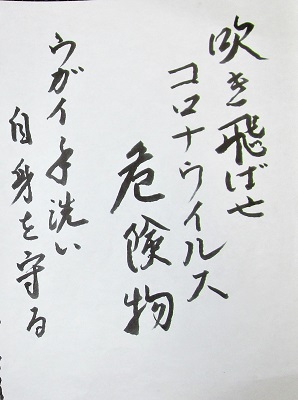 吹き飛ばせ
コロナウイルス
危険物
ウガイ手洗い
自身を守る